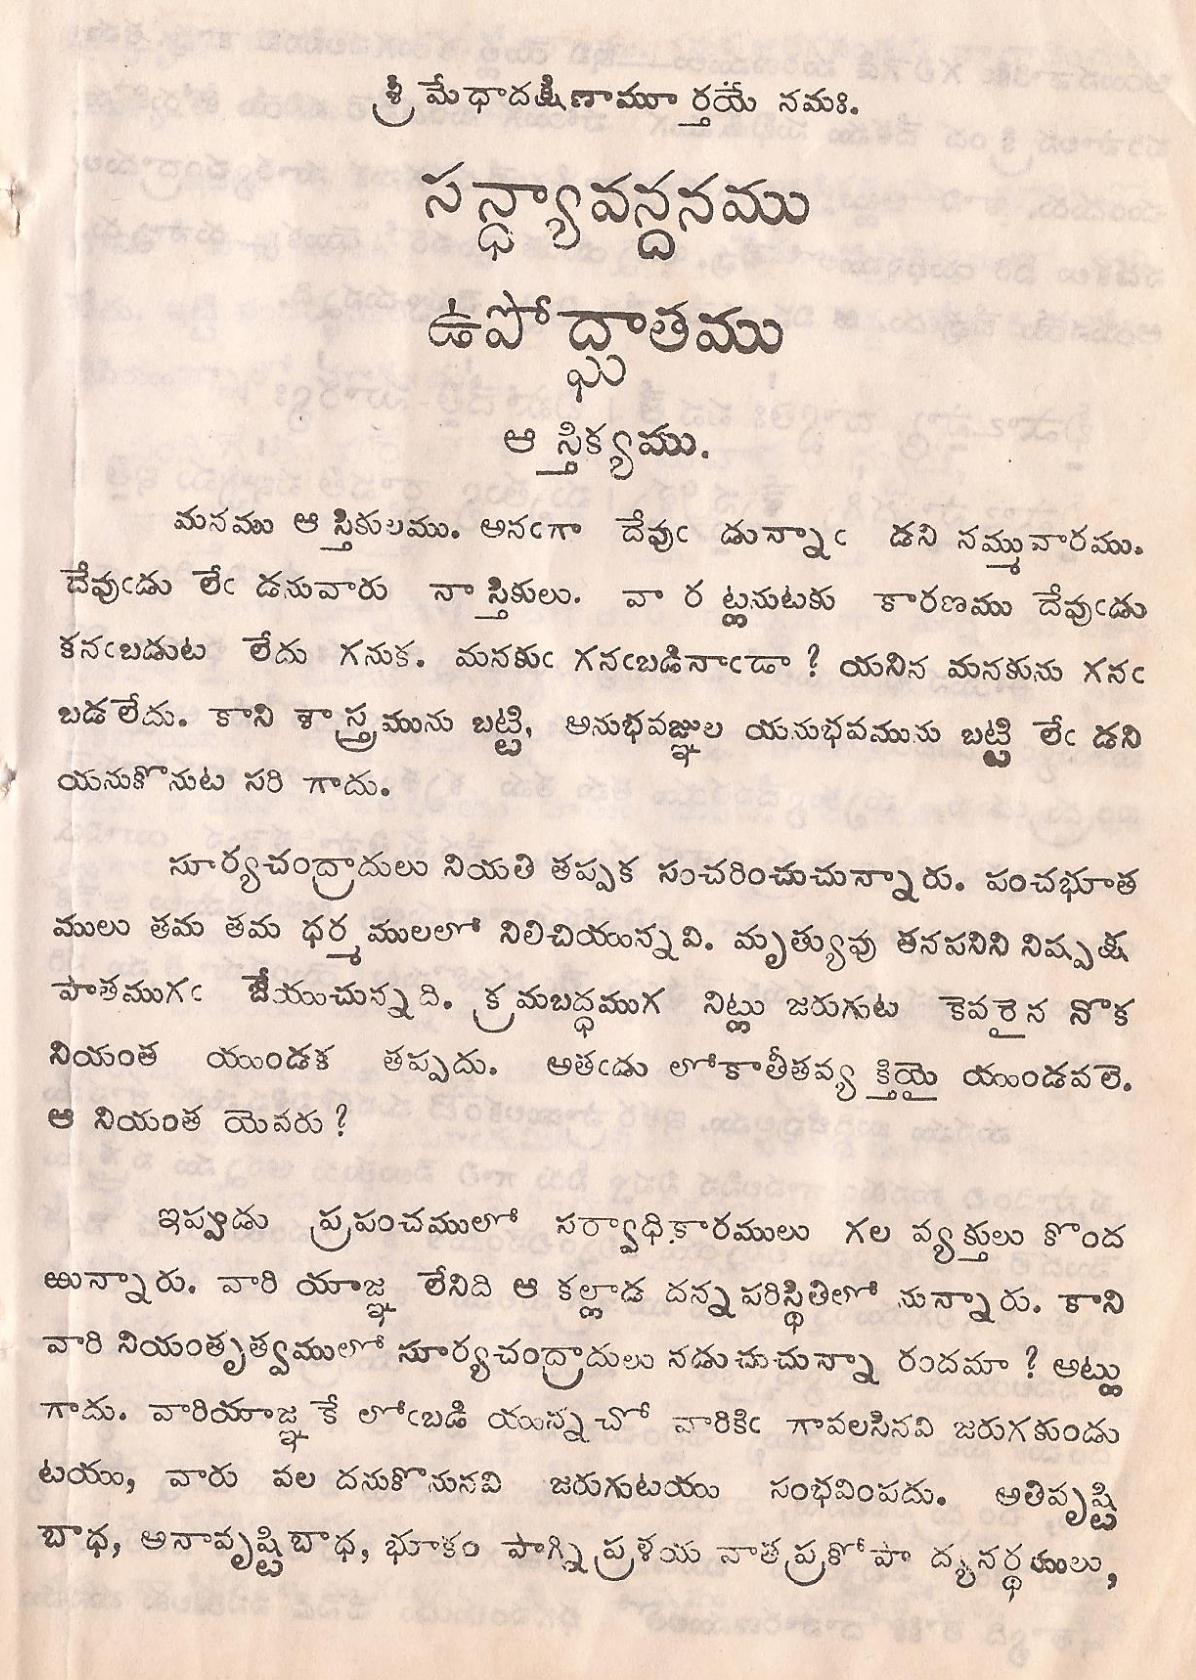 శ్రీ మేధాదక్షిణామూర్తయే నమః.
సన్ధ్యావన్దనము
ఉపోద్ఘాతము
ఆస్తిక్యము.
మనము ఆస్తికులము. అనఁగా దేవుఁ డున్నాఁ డని నమ్మువారము.
దేవుఁడు లేఁ డనువారు నాస్తికులు. వా రట్లనుటకు కారణము దేవుఁడు
కనఁబడుట లేదు గనుక. మనకుఁ గనఁబడినాఁడా ? యనిన మనకును గనఁ
బడలేదు. కాని శాస్త్రమును బట్టి, అనుభవజ్ఞుల యనుభవమును బట్టి లేఁ డని
యనుకొనుట సరి గాదు.
సూర్యచంద్రాదులు నియతి తప్పక సంచరించుచున్నారు. పంచభూత
ములు తమ తమ ధర్మములలో నిలిచియున్నవి. మృత్యువు తనపనిని నిష్పక్ష
పాతముగఁ జేయుచున్నది. క్రమబద్ధముగ నిట్లు జరుగుట కెవరైన నొక
నియంత యుండక తప్పదు. అతఁడు లోకాతీతవ్యక్తియై యుండవలె.
ఆ నియంత యెవరు ?
ఇప్పుడు ప్రపంచములో సర్వాధికారములు గల వ్యక్తులు కొంద
ఱున్నారు. వారి యాజ్ఞ లేనిది ఆ కల్లాడ దన్న పరిస్థితిలో నున్నారు. కాని
వారి నియంతృత్వములో సూర్యచంద్రాదులు నడుచుచున్నా రందమా ? అట్లు
గాదు. వారియాజ్ఞకే లోఁబడి యున్నచో వారికిఁ గావలసినవి జరుగకుండు
టయు, వారు వల దనుకొనునవి జరుగుటయు సంభవింపదు. అతివృష్టి
బాధ, అనావృష్టిబాధ, భూకం పాగ్ని ప్రళయ వాతప్రకోపా ద్యనర్థములు,